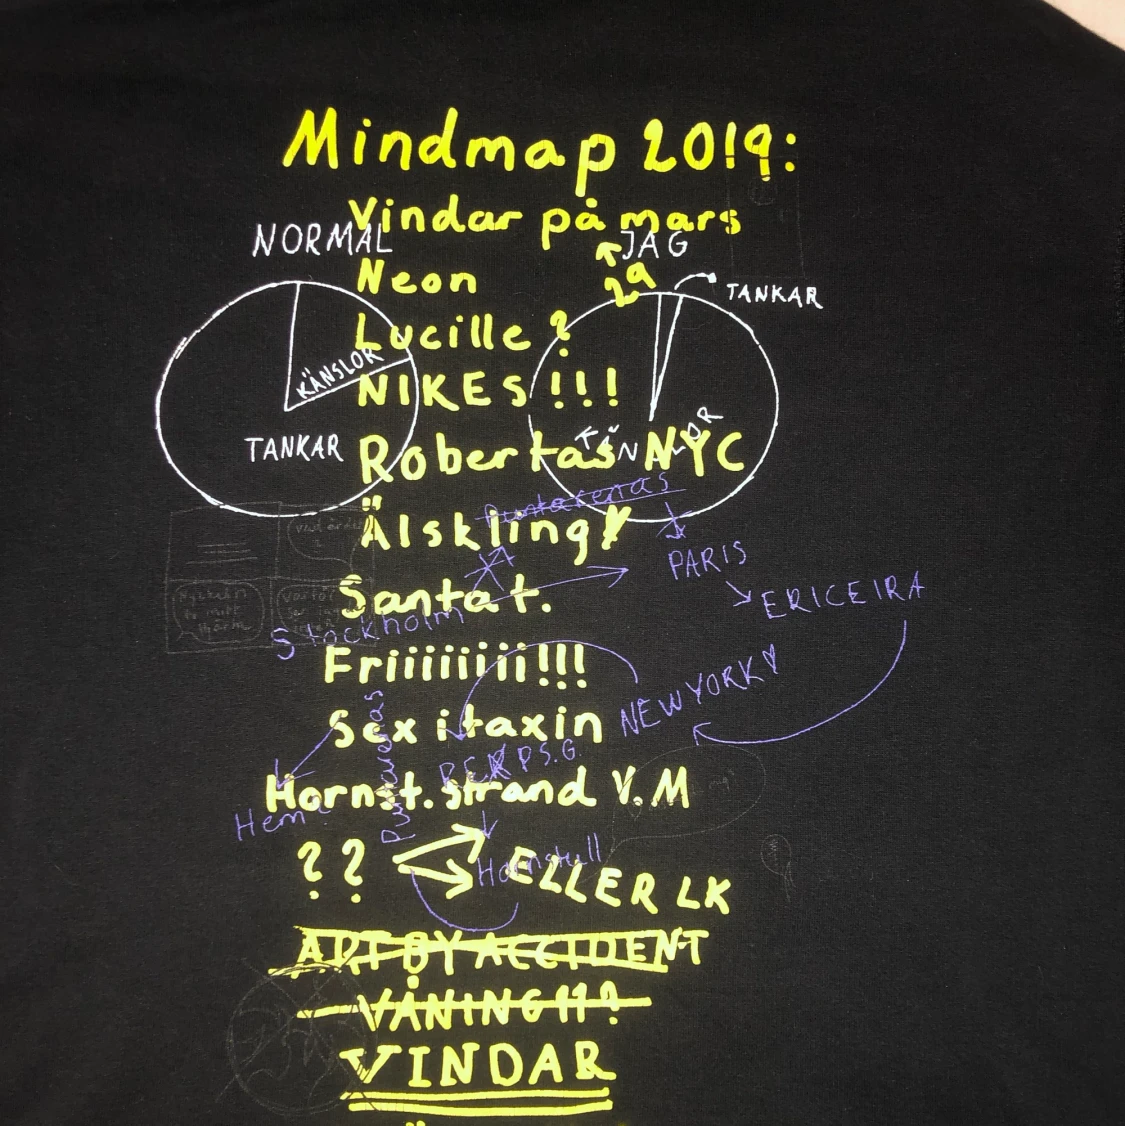 Mindmap 2019:
Vindar på mars
NORMAL
JAG
Neon
2a
TANKAR
Lucille?
KÄNSLOR
NIKES!!!
TANKAR
Robertas NYC
Puntarenas
Älskling
PARIS
Santa t.
ERICEIRA
Stockholm
Friiiiiiiii!!!
NEW YORK
Sex i taxin
Puntarenas
P.S.G.
Hornst. strand V.M
Hem
??
Hornstull
ELLER LK
ART BY ACCIDENT
VÅNING 11?
VINDAR